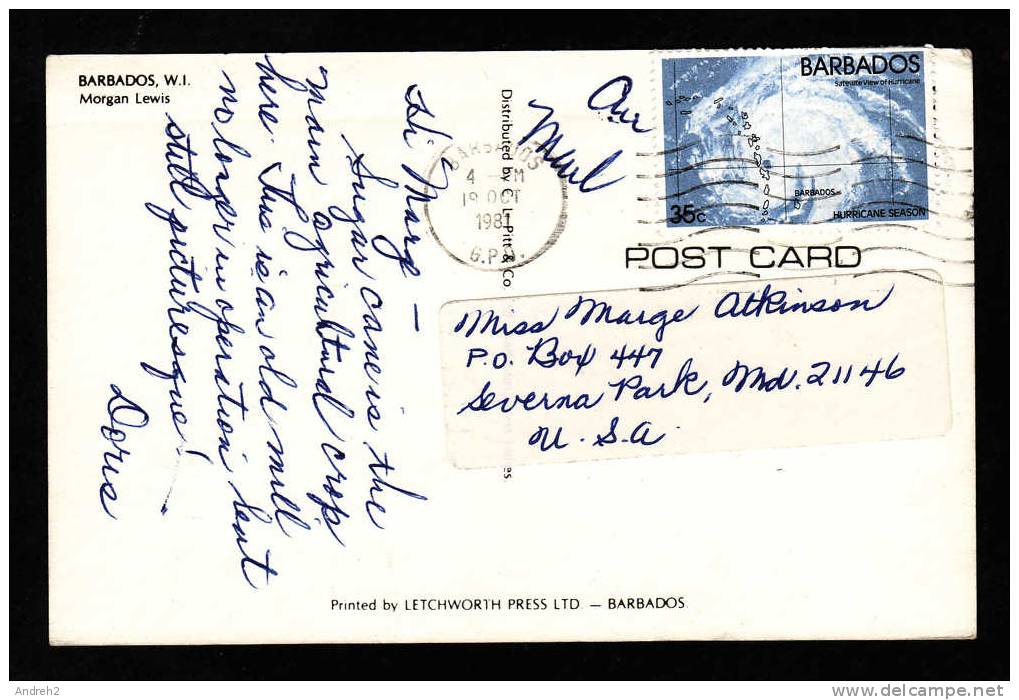 BARBADOS, W.I.
Morgan Lewis
Hi Marge —
Sugar cane is the
main agricultural crop
here. This is an old mill
no longer in operation but
still picturesque!
Doris
Distributed by C. L. Pitt & Co
Air
Mail
BARBADOS
4 PM
19 OCT
1981
G.P.O.
BARBADOS
Satellite View of Hurricane
BARBADOS
35c
HURRICANE SEASON
POST CARD
Miss Marge Atkinson
P.O. Box 447
Severna Park, Md. 21146
U.S.A.
Printed by LETCHWORTH PRESS LTD. — BARBADOS.
Andreh2
www.delcampe.net